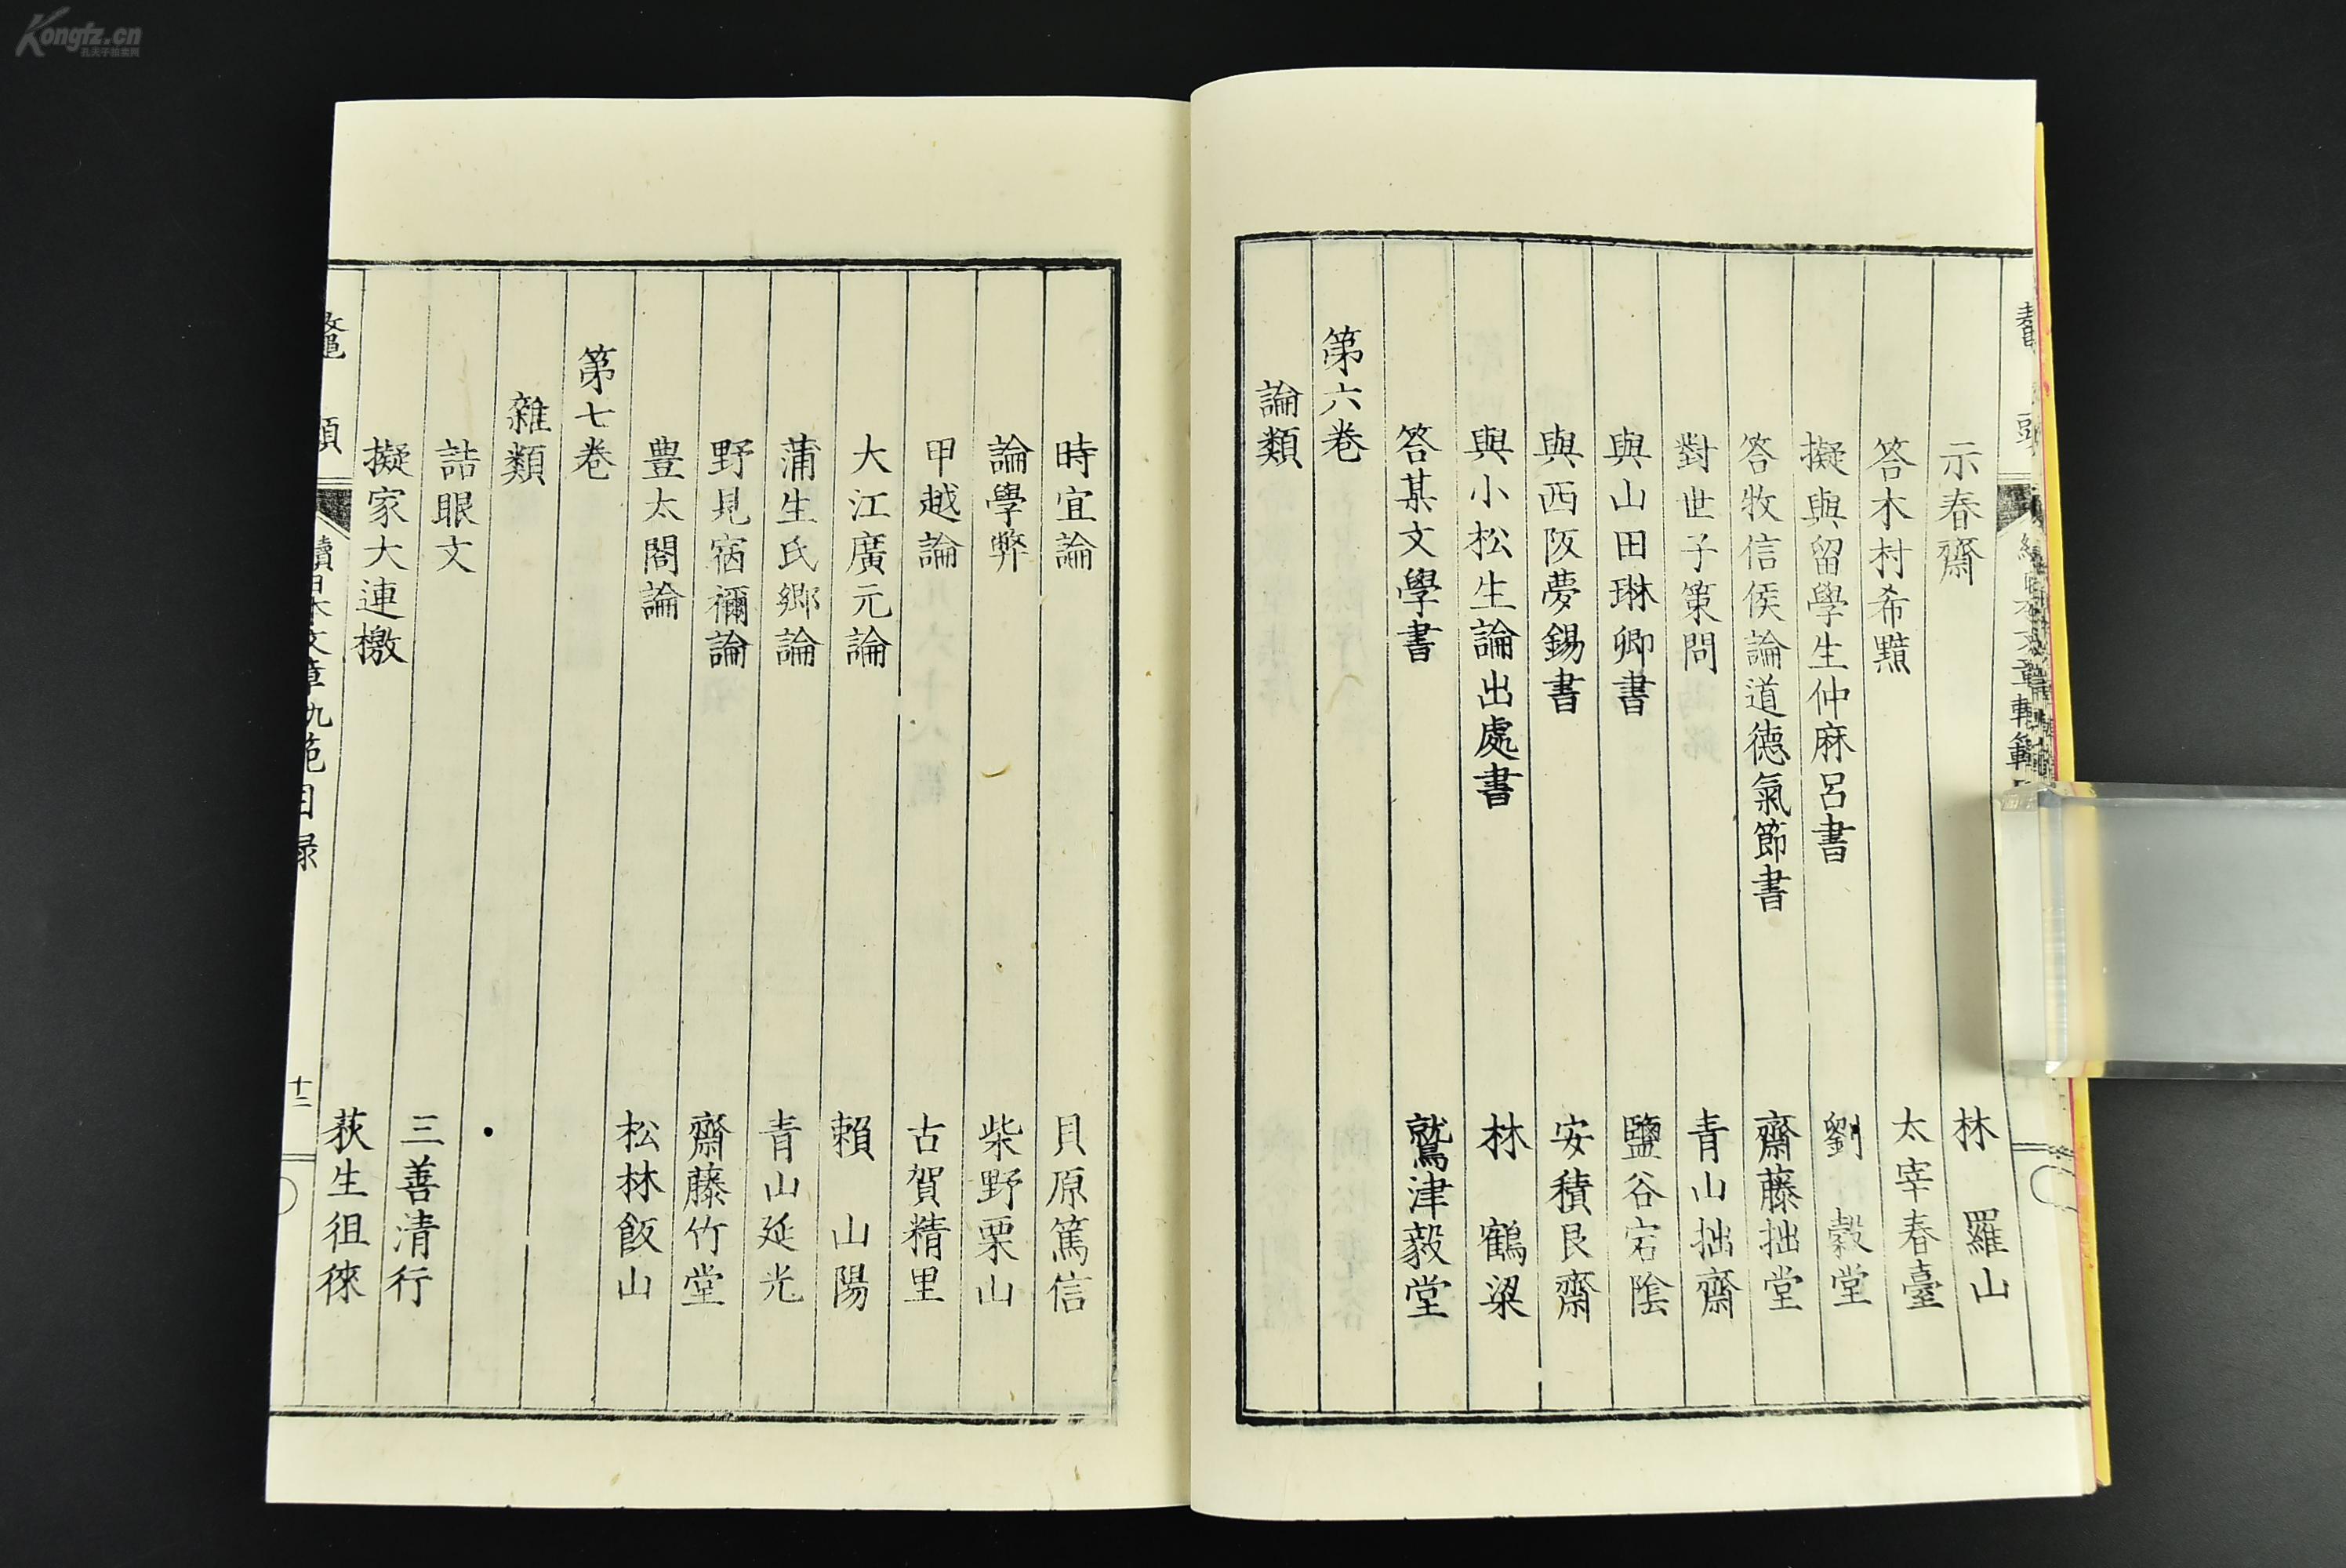 Kongfz.cn
孔夫子拍卖网
示春齋　林　羅山
答木村希黯　太宰春臺
擬與留學生仲麻呂書　劉　穀堂
答牧信侯論道德氣節書　齋藤拙堂
對世子策問　青山拙齋
與山田琳卿書　鹽谷宕陰
與西阪夢錫書　安積艮齋
與小松生論出處書　林　鶴梁
答某文學書　鷲津毅堂
第六卷
論類
時宜論　貝原篤信
論學弊　柴野栗山
甲越論　古賀精里
大江廣元論　賴　山陽
蒲生氏鄉論　青山延光
野見宿禰論　齋藤竹堂
豊太閤論　松林飯山
第七卷
雜類
詰眼文　三善清行
擬家大連檄　荻生徂徠
續日本文章軌範目録
十二